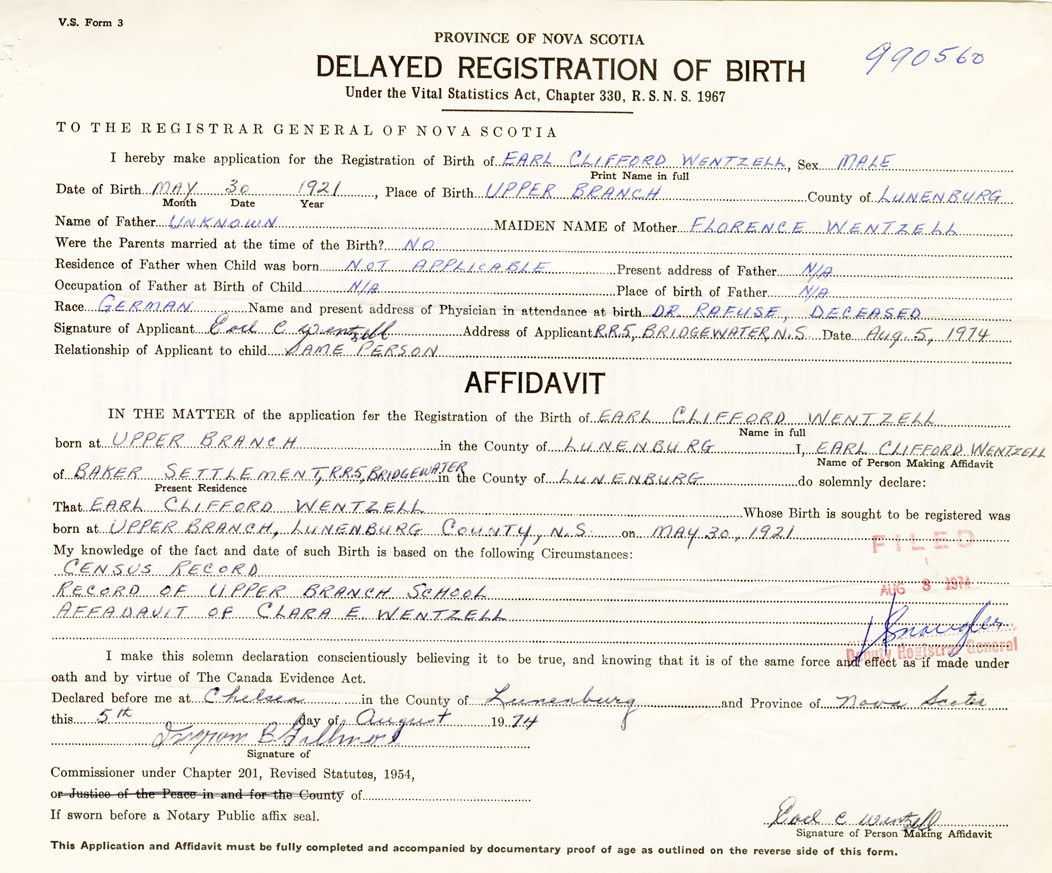 V.S. Form 3
PROVINCE OF NOVA SCOTIA
990560
DELAYED REGISTRATION OF BIRTH
Under the Vital Statistics Act, Chapter 330, R. S. N. S. 1967
TO THE REGISTRAR GENERAL OF NOVA SCOTIA
I hereby make application for the Registration of Birth of EARL CLIFFORD WENTZELL, Sex MALE
Print Name in full
Date of Birth MAY 30 1921, Place of Birth UPPER BRANCH County of LUNENBURG
Month Date Year
Name of Father UNKNOWN MAIDEN NAME of Mother FLORENCE WENTZELL
Were the Parents married at the time of the Birth? NO
Residence of Father when Child was born NOT APPLICABLE Present address of Father N/A
Occupation of Father at Birth of Child N/A Place of birth of Father N/A
Race GERMAN Name and present address of Physician in attendance at birth DR RAFUSE, DECEASED
Signature of Applicant Earl C Wentzell Address of Applicant R.R.5, BRIDGEWATER, N.S. Date Aug. 5, 1974
Relationship of Applicant to child SAME PERSON
AFFIDAVIT
IN THE MATTER of the application for the Registration of the Birth of EARL CLIFFORD WENTZELL
Name in full
born at UPPER BRANCH in the County of LUNENBURG I, EARL CLIFFORD WENTZELL
Name of Person Making Affidavit
of BAKER SETTLEMENT, R.R.5, BRIDGEWATER in the County of LUNENBURG do solemnly declare:
Present Residence
That EARL CLIFFORD WENTZELL Whose Birth is sought to be registered was
born at UPPER BRANCH, LUNENBURG COUNTY, N.S. on MAY 30, 1921
My knowledge of the fact and date of such Birth is based on the following Circumstances:
FILED
CENSUS RECORD
RECORD OF UPPER BRANCH SCHOOL
AUG 8 1974
AFFADAVIT OF CLARA E. WENTZELL
Deputy Registrar General
I make this solemn declaration conscientiously believing it to be true, and knowing that it is of the same force and effect as if made under
oath and by virtue of The Canada Evidence Act.
Declared before me at Chelsea in the County of Lunenburg and Province of Nova Scotia
this 5th day of August 1974
Signature of
Commissioner under Chapter 201, Revised Statutes, 1954,
or Justice of the Peace in and for the County of
If sworn before a Notary Public affix seal.
Earl C Wentzell
Signature of Person Making Affidavit
This Application and Affidavit must be fully completed and accompanied by documentary proof of age as outlined on the reverse side of this form.